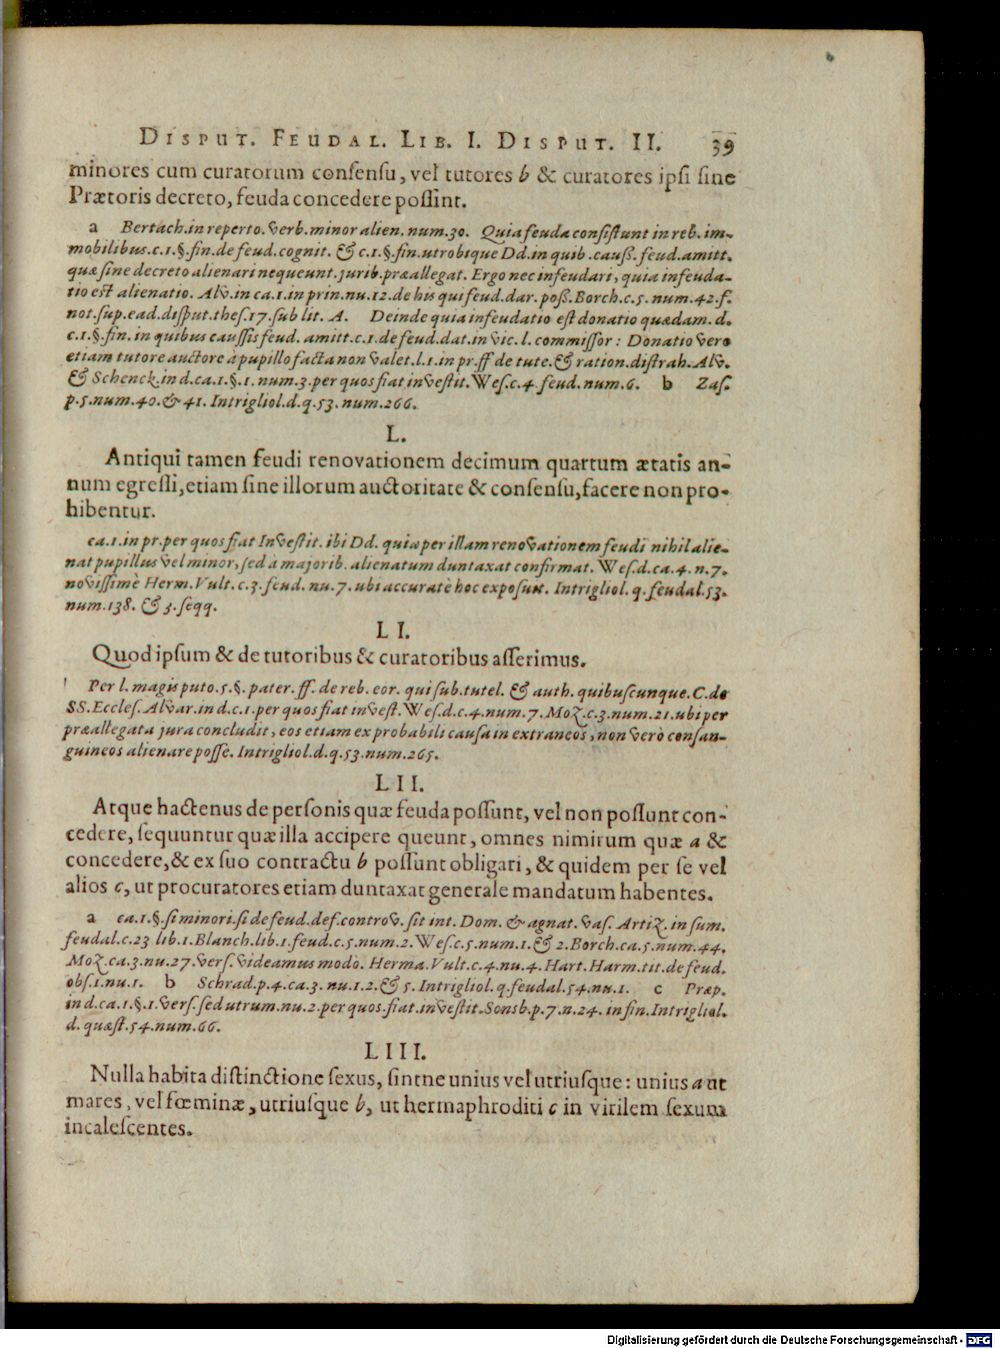 DISPUT. FEUDAL. LIB. I. DISPUT. II. 39
minores cum curatorum consensu, vel tutores b & curatores ipsi sine
Prætoris decreto, feuda concedere possint.
a Bertach. in reperto. verb. minor alien. num. 30. Quia feuda consistunt in reb. im-
mobilibus. c. 1. §. fin. de feud. cognit. & c. 1. §. fin. utrobique Dd. in quib. causs. feud. amitt.
quæ sine decreto alienari nequeunt. jurib. præallegat. Ergo nec infeudari, quia infeuda-
tio est alienatio. Alv. in ca. 1. in prin. nu. 12. de his qui feud. dar. poss. Borch. c. 5. num. 42. f.
not. sup. ead. disput. thes. 17. sub lit. A. Deinde quia infeudatio est donatio quædam. d.
c. 1. §. fin. in quibus caussis feud. amitt. c. 1. de feud. dat. in vic. l. commissor: Donatio vero
etiam tutore auctore à pupillo facta non valet. l. 1. in pr. ff de tute. & ration. distrah. Alv.
& Schenck. in d. ca. 1. §. 1. num. 3. per quos fiat investit. Wes. c. 4. feud. num. 6. b Zas.
p. 5. num. 40. & 41. Intrigliol. d. q. 53. num. 266.
L.
Antiqui tamen feudi renovationem decimum quartum ætatis an-
num egressi, etiam sine illorum auctoritate & consensu, facere non pro-
hibentur.
ca. 1. in pr. per quos fiat Investit. ibi Dd. quia per illam renovationem feudi nihil alie-
nat pupillus vel minor, sed à majorib. alienatum duntaxat confirmat. Wes. d. ca. 4. n. 7.
novissimè Herm. Vult. c. 3. feud. nu. 7. ubi accuratè hoc exposuit. Intrigliol. q. feudal. 53.
num. 138. & 3. seqq.
LI.
Quod ipsum & de tutoribus & curatoribus asserimus.
Per l. magis puto. 5. §. pater. ff. de reb. eor. qui sub. tutel. & auth. quibuscunque. C. de
SS. Eccles. Alvar. in d. c. 1. per quos fiat invest. Wes. d. c. 4. num. 7. Moz. c. 3. num. 21. ubi per
præallegata jura concludit, eos etiam ex probabili causa in extraneos, non verò consan-
guineos alienare posse. Intrigliol. d. q. 53. num. 265.
LII.
Atque hactenus de personis quæ feuda possunt, vel non possunt con-
cedere, sequuntur quæ illa accipere queunt, omnes nimirum quæ a &
concedere, & ex suo contractu b possunt obligari, & quidem per se vel
alios c, ut procuratores etiam duntaxat generale mandatum habentes.
a ca. 1. §. si minori. si de feud. def. controv. sit int. Dom. & agnat. Vas. Artiz. in sum.
feudal. c. 23 lib. 1. Blanch. lib. 1. feud. c. 5. num. 2. Wes. c. 5. num. 1. & 2. Borch. ca. 5. num. 44.
Moz. ca. 3. nu. 27. vers. videamus modò. Herma. Vult. c. 4. nu. 4. Hart. Harm. tit. de feud.
obs. 1. nu. 1. b Schrad. p. 4. ca. 3. nu. 1. 2. & 5. Intrigliol. q. feudal. 54. nu. 1. c Præp.
in d. ca. 1. §. 1. vers. sed utrum. nu. 2. per quos. fiat. investit. Sonsb. p. 7. n. 24. in fin. Intrigliol.
d. quæst. 54. num. 66.
LIII.
Nulla habita distinctione sexus, sintne unius vel utriusque: unius a ut
mares, vel fœminæ, utriusque b, ut hermaphroditi c in virilem sexum
incalescentes.
Digitalisierung gefördert durch die Deutsche Forschungsgemeinschaft - DFG